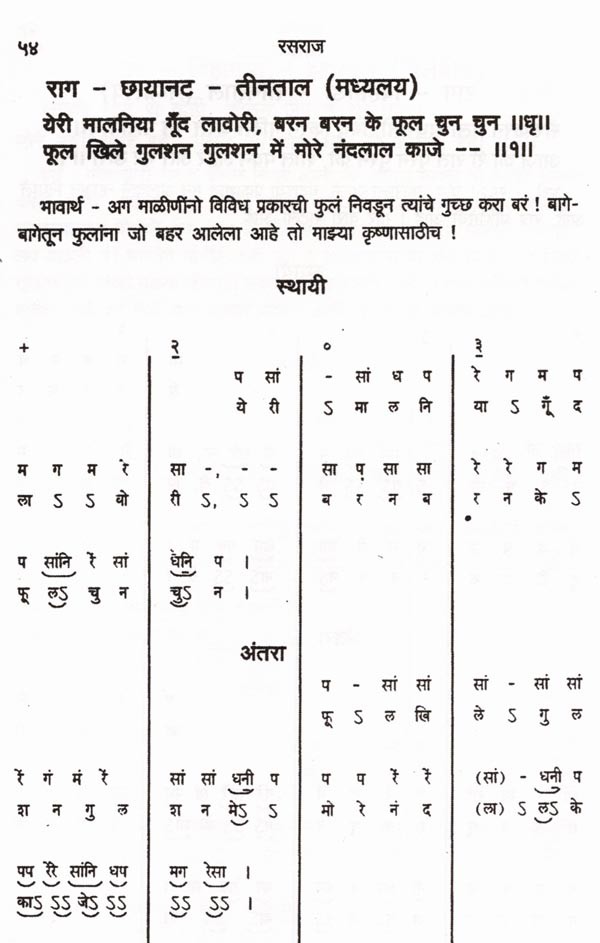 ५४ रसराज
राग - छायानट - तीनताल (मध्यलय)
येरी मालनिया गूँद लावोरी, बरन बरन के फूल चुन चुन ॥धृ॥
फूल खिले गुलशन गुलशन में मोरे नंदलाल काजे -- ॥१॥
भावार्थ - अग माळीणींनो विविध प्रकारची फुलं निवडून त्यांचे गुच्छ करा बरं ! बागे-
बागेतून फुलांना जो बहर आलेला आहे तो माझ्या कृष्णासाठीच !
स्थायी
+ २ ० ३
प सां - सां ध प रे ग म प
ये री ऽ मा ल नि या ऽ गूँ द
म ग म रे सा -, - - सा प़ सा सा रे रे ग म
ला ऽ ऽ वो री ऽ, ऽ ऽ ब र न ब र न के ऽ
प सांनि रें सां धनि प ।
फू लऽ चु न चुऽ न ।
अंतरा
प - सां सां सां - सां सां
फू ऽ ल खि ले ऽ गु ल
रें गं मं रें सां सां धनी प प प रें रें (सां) - धनी प
श न गु ल श न मेऽ ऽ मो रे नं द (ला) ऽ लऽ के
पप रेरे सांनि धप मग रेसा ।
काऽ ऽऽ जेऽ ऽऽ ऽऽ ऽऽ ।